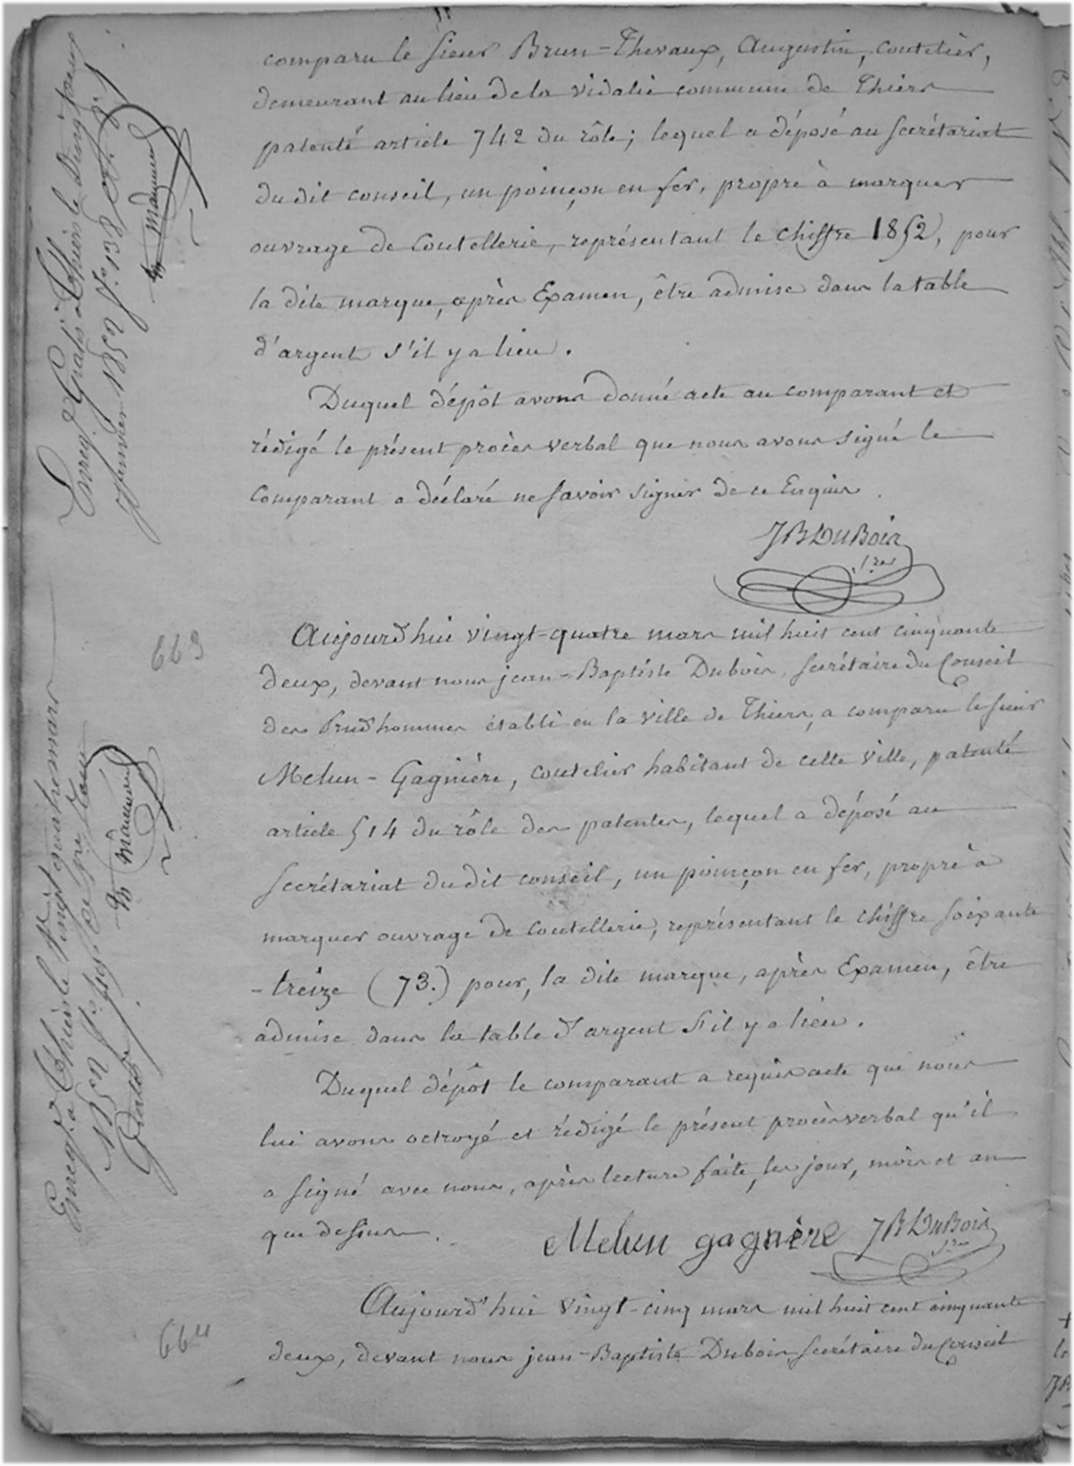 comparu le sieur Brun-Thevaux, Augustin, coutelier,
demeurant au lieu de la vidalie commune de Thiers
patenté article 742 du rôle; lequel a déposé au secrétariat
du dit conseil, un poinçon en fer, propre à marquer
ouvrage de Coutellerie, représentant le chiffre 1852, pour
la dite marque, après Examen, être admise dans la table
d'argent s'il y a lieu.
Duquel dépôt avons donné acte au comparant et
rédigé le présent procès verbal que nous avons signé le
Comparant a déclaré ne savoir signer de ce Enquis.
JB DuBois
Sre
663
Aujourd'hui vingt-quatre mars mil huit cent cinquante
deux, devant nous jean-Baptiste Dubois, secrétaire du Conseil
des Prudhommes établi en la ville de Thiers, a comparu le sieur
Melun-Gagnière, coutelier habitant de cette ville, patenté
article 514 du rôle des patentes, lequel a déposé au
secrétariat du dit conseil, un poinçon en fer, propre à
marquer ouvrage de Coutellerie, représentant le chiffre soixante
-treize (73.) pour, la dite marque, après Examen, être
admise dans la table d'argent s'il y a lieu.
Duquel dépôt le comparant a requis acte que nous
lui avons octroyé et rédigé le présent procès verbal qu'il
a signé avec nous, après lecture faite, les jour, mois et an
que dessus.
Melun gagnère JB DuBois
Sre
664
Aujourd'hui vingt-cinq mars mil huit cent cinquante
deux, devant nous jean-Baptiste Dubois secrétaire du Conseil
Enreg. Gratis à Thiers le
1852 fo 138
Enregé à Thiers le vingt quatre mars
1852 fo
Gratis